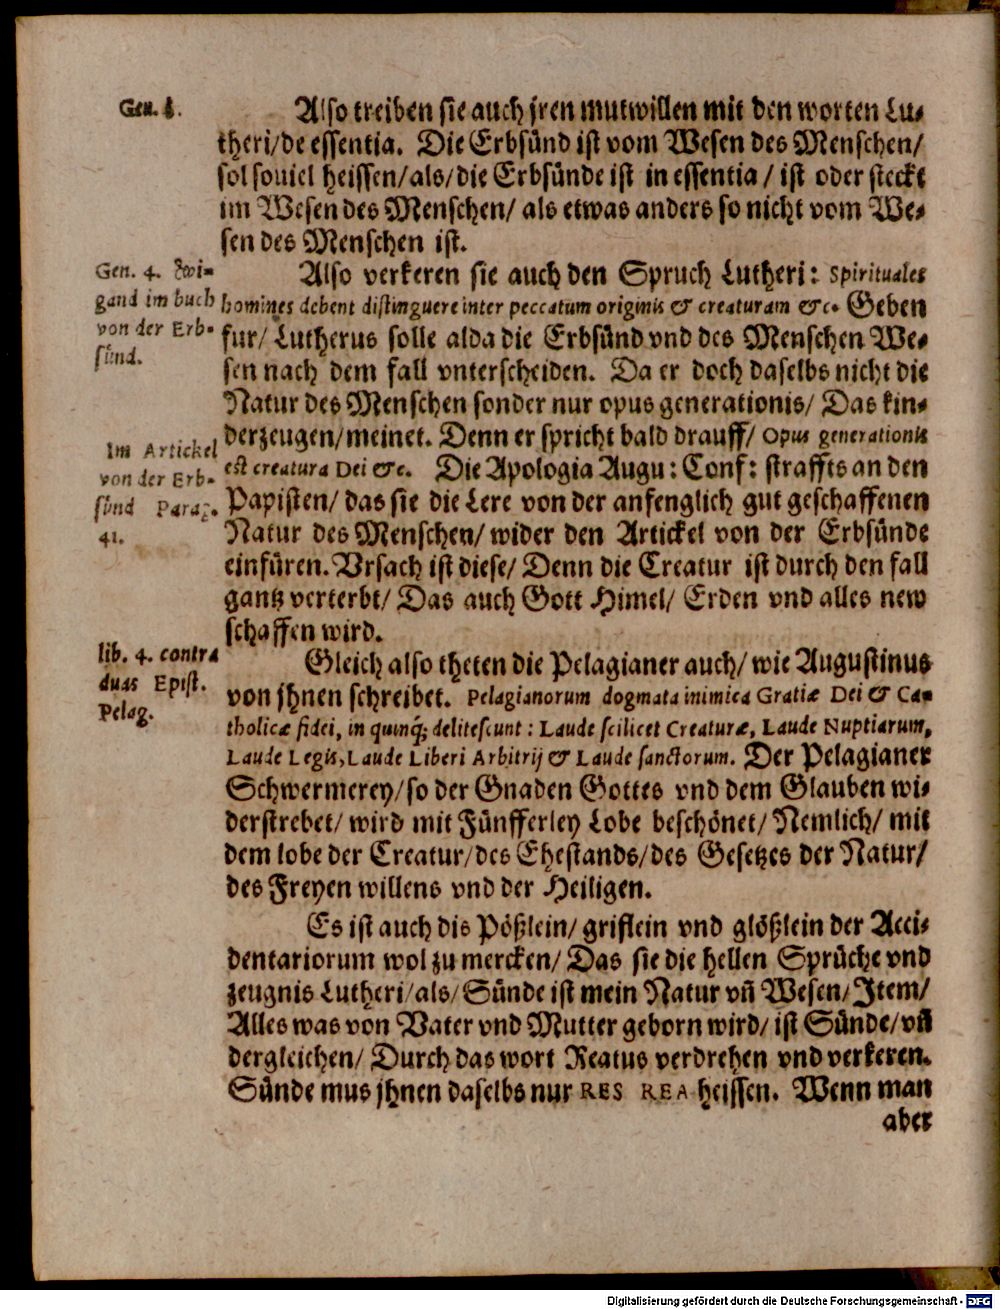 Gen. 8.
Also treiben sie auch jren mutwillen mit den worten Lu⸗
theri/de essentia. Die Erbsünd ist vom Wesen des Menschen/
sol souiel heissen/als/die Erbsünde ist in essentia / ist oder steckt
im Wesen des Menschen/ als etwas anders so nicht vom We⸗
sen des Menschen ist.
Gen. 4. Zwi-
gand im buch
von der Erb-
sünd.
Also verkeren sie auch den Spruch Lutheri: Spirituales
homines debent distinguere inter peccatum originis & creaturam &c. Geben
fur/ Lutherus solle alda die Erbsünd vnd des Menschen We⸗
sen nach dem fall vnterscheiden. Da er doch daselbs nicht die
Natur des Menschen sonder nur opus generationis/ Das kin⸗
derzeugen/meinet. Denn er spricht bald drauff/ Opus generationis
est creatura Dei &c. Die Apologia Augu: Conf: straffts an den
Im Artickel
von der Erb-
sünd Parag.
41.
Papisten/ das sie die Lere von der anfenglich gut geschaffenen
Natur des Menschen/ wider den Artickel von der Erbsünde
einfüren. Vrsach ist diese/ Denn die Creatur ist durch den fall
gantz verterbt/ Das auch Gott Himel/ Erden vnd alles new
schaffen wird.
lib. 4. contra
duas Epist.
Pelag.
Gleich also theten die Pelagianer auch/ wie Augustinus
von jhnen schreibet. Pelagianorum dogmata inimica Gratiæ Dei & Ca-
tholicæ fidei, in quinq́; delitescunt : Laude scilicet Creaturæ, Laude Nuptiarum,
Laude Legis, Laude Liberi Arbitrij & Laude sanctorum. Der Pelagianer
Schwermerey/so der Gnaden Gottes vnd dem Glauben wi⸗
derstrebet/ wird mit Fünfferley Lobe beschönet/ Nemlich/ mit
dem lobe der Creatur/des Ehestands/des Gesetzes der Natur/
des Freyen willens vnd der Heiligen.
Es ist auch dis Pößlein/ griflein vnd glößlein der Acci⸗
dentariorum wol zu mercken/ Das sie die hellen Sprüche vnd
zeugnis Lutheri/als/ Sünde ist mein Natur vñ Wesen/ Item/
Alles was von Vater vnd Mutter geborn wird/ ist Sünde/ vñ
dergleichen/ Durch das wort Reatus verdrehen vnd verkeren.
Sünde mus jhnen daselbs nur RES REA heissen. Wenn man
aber
Digitalisierung gefördert durch die Deutsche Forschungsgemeinschaft - DFG